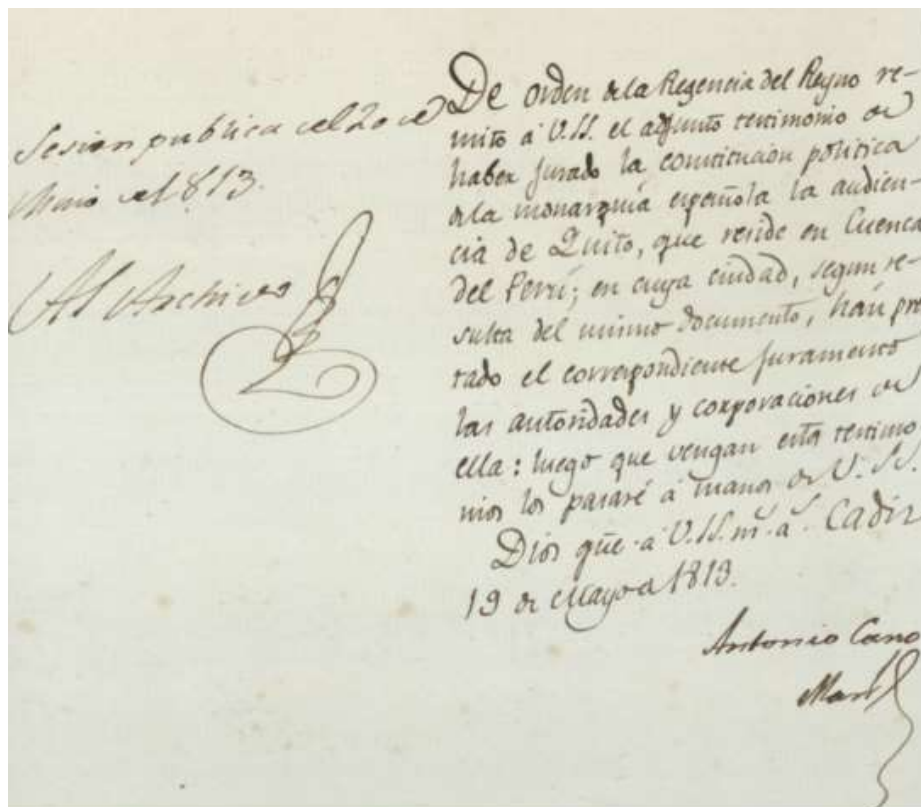 Sesion publica del 20 de
Maio de 1813.
Al Archivo
De orden de la Regencia del Reyno re-
mito á V.SS. el adjunto testimonio de
haber jurado la constitucion politica
de la monarquía española la audien-
cia de Quito, que reside en Cuenca
del Perú; en cuya ciudad, segun re-
sulta del mismo documento, hán pres
tado el correspondiente juramento
las autoridades y corporaciones de
ella: luego que vengan estos testimo
nios los pasaré á manos de V.SS.
Dios gūe á V.SS. ms. as. Cadiz
19 de Mayo de 1813.
Antonio Cano
Man